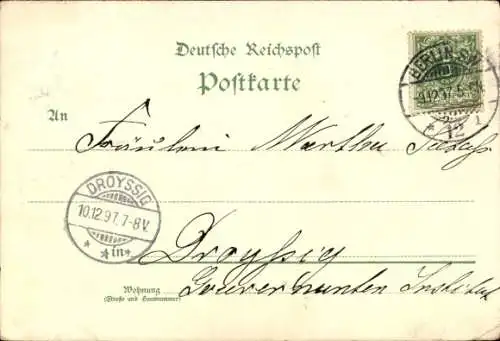 Deutsche Reichspost
Postkarte
BERLIN S.W.
9.12.97. 5-6N.
* 12 1
An
Fräulein Martha
DROYSSIG
10.12.97. 7-8V.
* *in* 
Droyssig
Wohnung
(Straße und Hausnummer)
Gouvernanten Institut